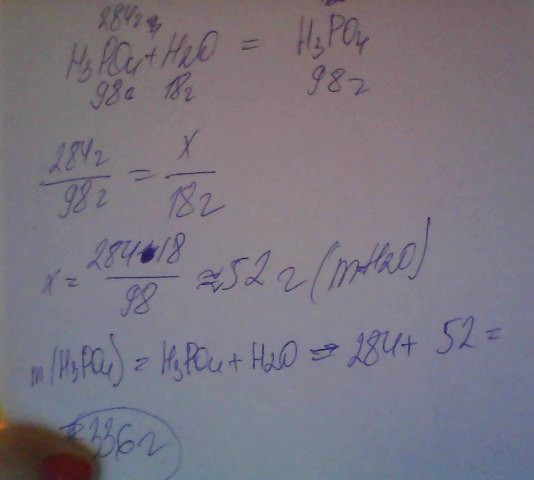 284г
H₃PO₄ + H₂O = H₃PO₄
98г 18г 98г
284г/98г = x/18г
x = 284·18/98 ≈ 52 г (mH₂O)
m(H₃PO₄) = H₃PO₄ + H₂O = 284 + 52 =
= 336г